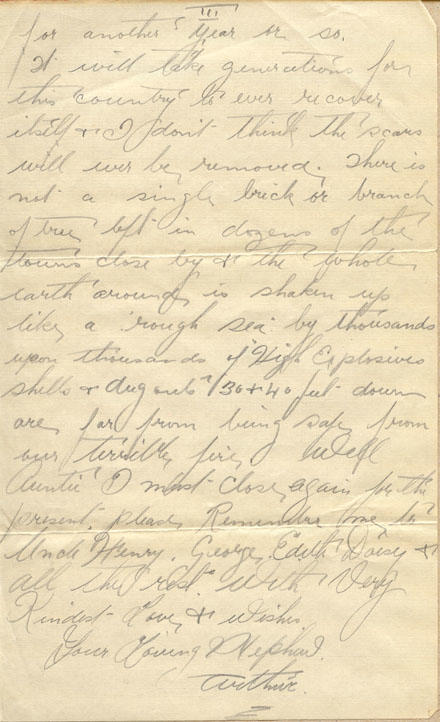 III
for another Year or so.
It will take generations for
this country to ever recover
itself & I don't think the scars
will ever be removed. There is
not a single brick or branch
of tree left in dozens of the
towns close by & the whole
earth around is shaken up
like a rough sea by thousands
upon thousands of High Explosives
shells & dugouts 30 & 40 feet down
are far from being safe from
our terrible fire. Well
Auntie I must close again for the
present, please Remember me to
Uncle Henry. George, Edith Daisy &
all the rest. With Very
Kindest Love & wishes
Your Loving Nephew.
Arthur.